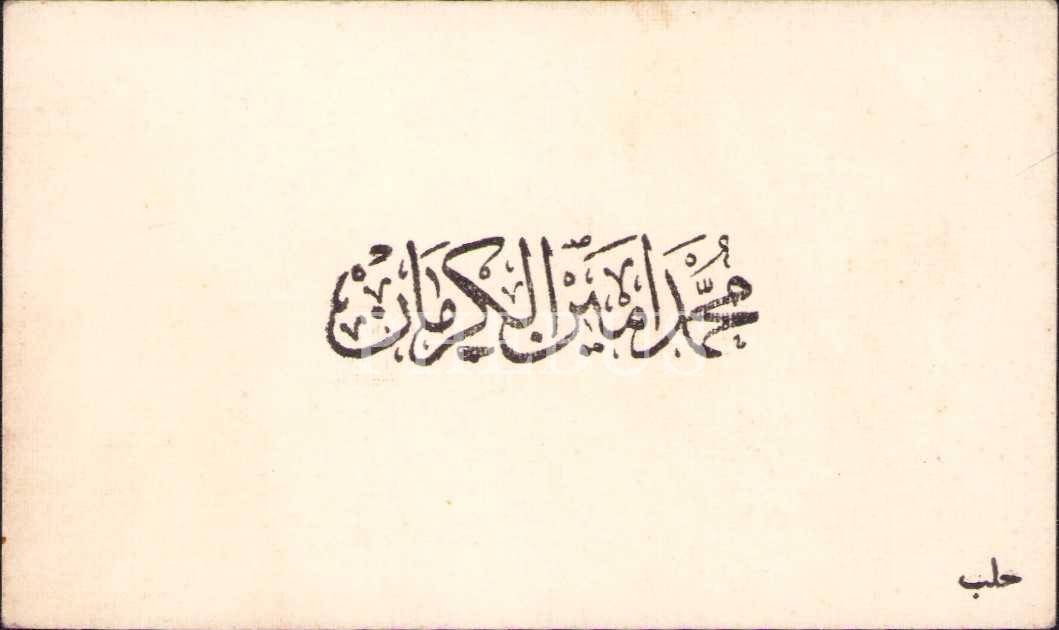 محمد امين الكرمان
PHEBUS
حلب